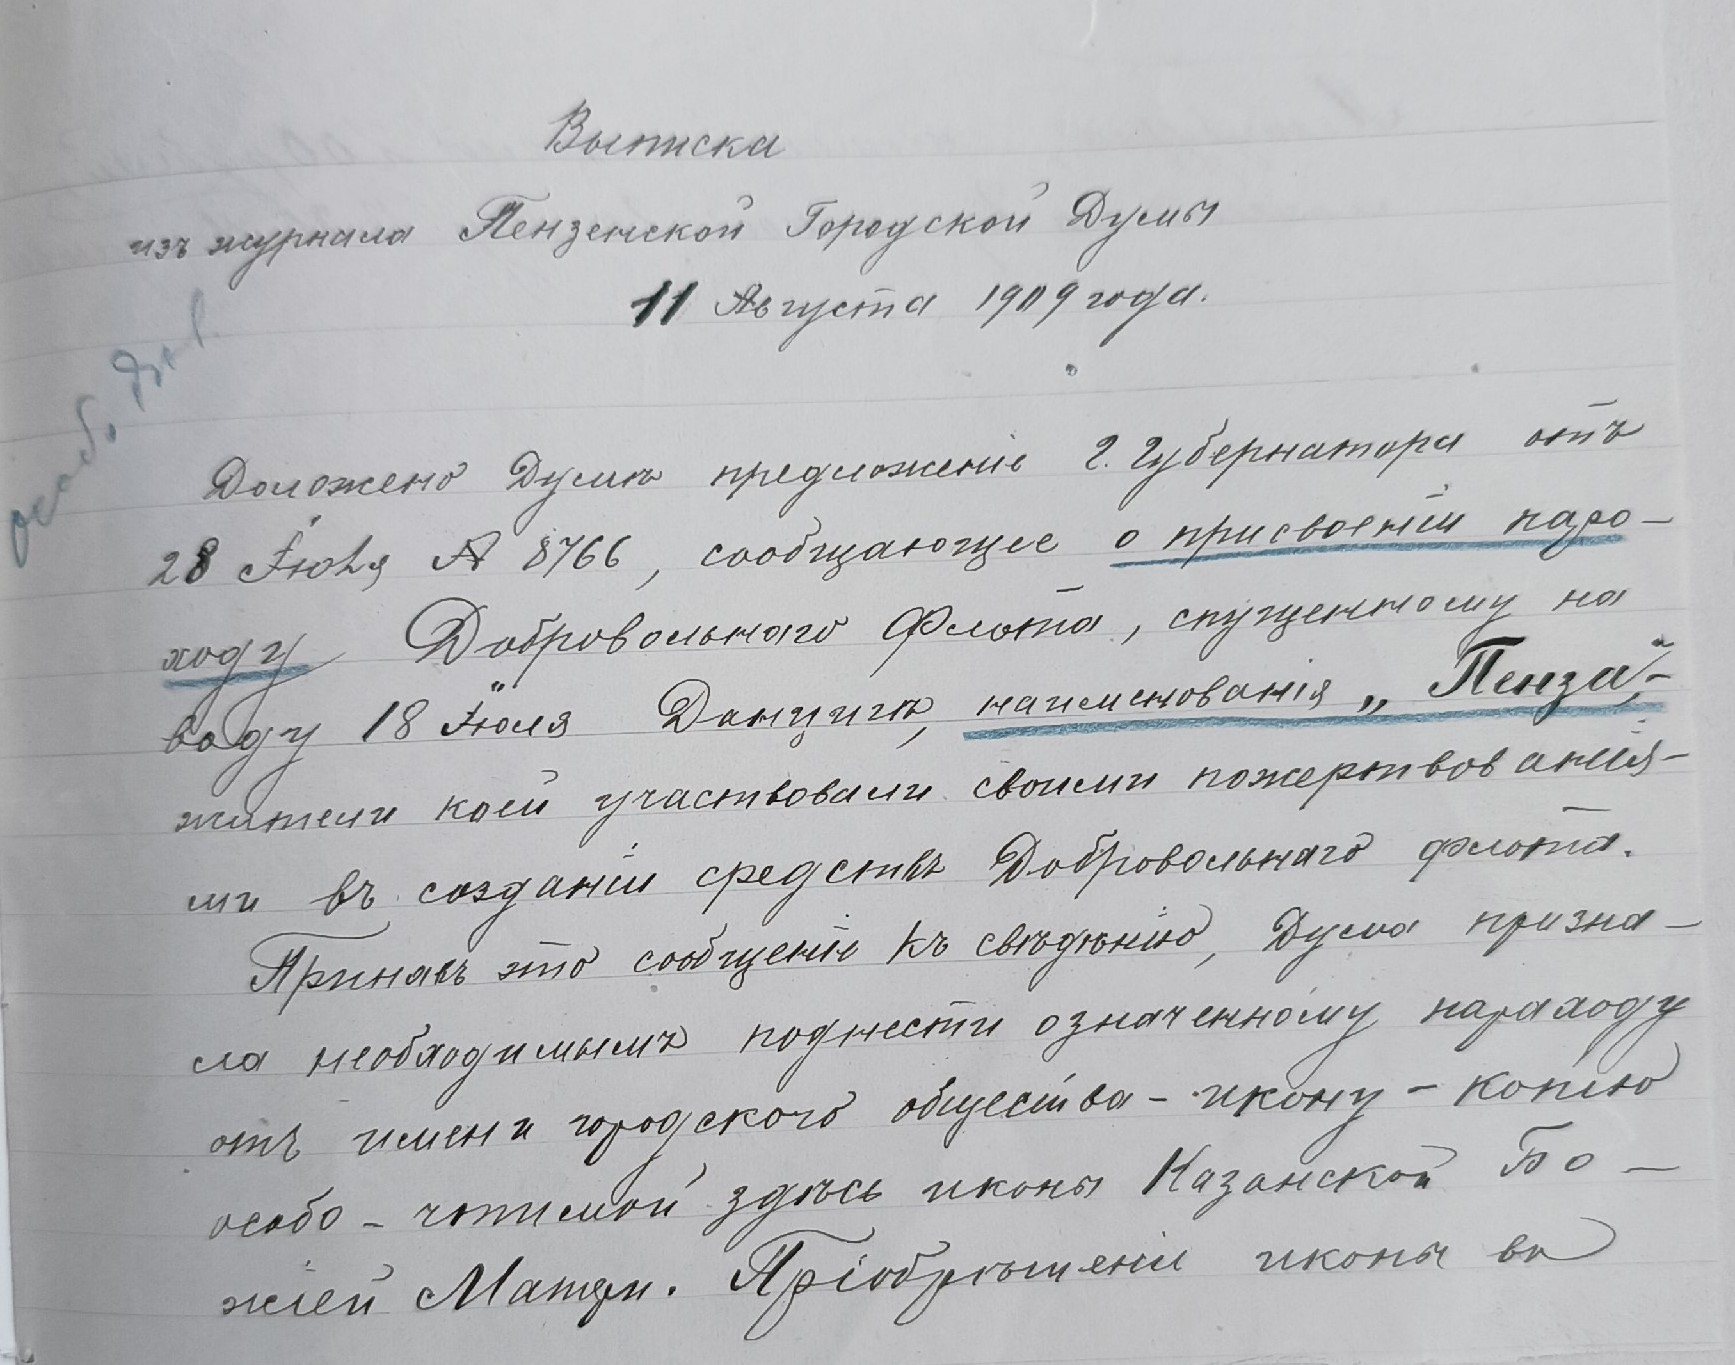 Выписка
изъ журнала Пензенской Городской Думы
11 Августа 1909 года.
Доложено Думѣ предложеніе Г. Губернатора отъ
28 Іюля № 8766, сообщающее о присвоеніи паро-
ходу Добровольнаго Флота, спущенному на
воду 18 Іюля Данцигѣ, наименованія „Пенза",-
жители коей участвовали своими пожертвованія-
ми въ созданіи средствъ Добровольнаго флота.
Принявъ это сообщеніе къ свѣдѣнію, Дума призна-
ла необходимымъ поднести означенному пароходу
отъ имени городского общества - икону - копію
особо - чтимой здѣсь иконы Казанской Бо-
жіей Матери. Пріобрѣтеніе иконы во